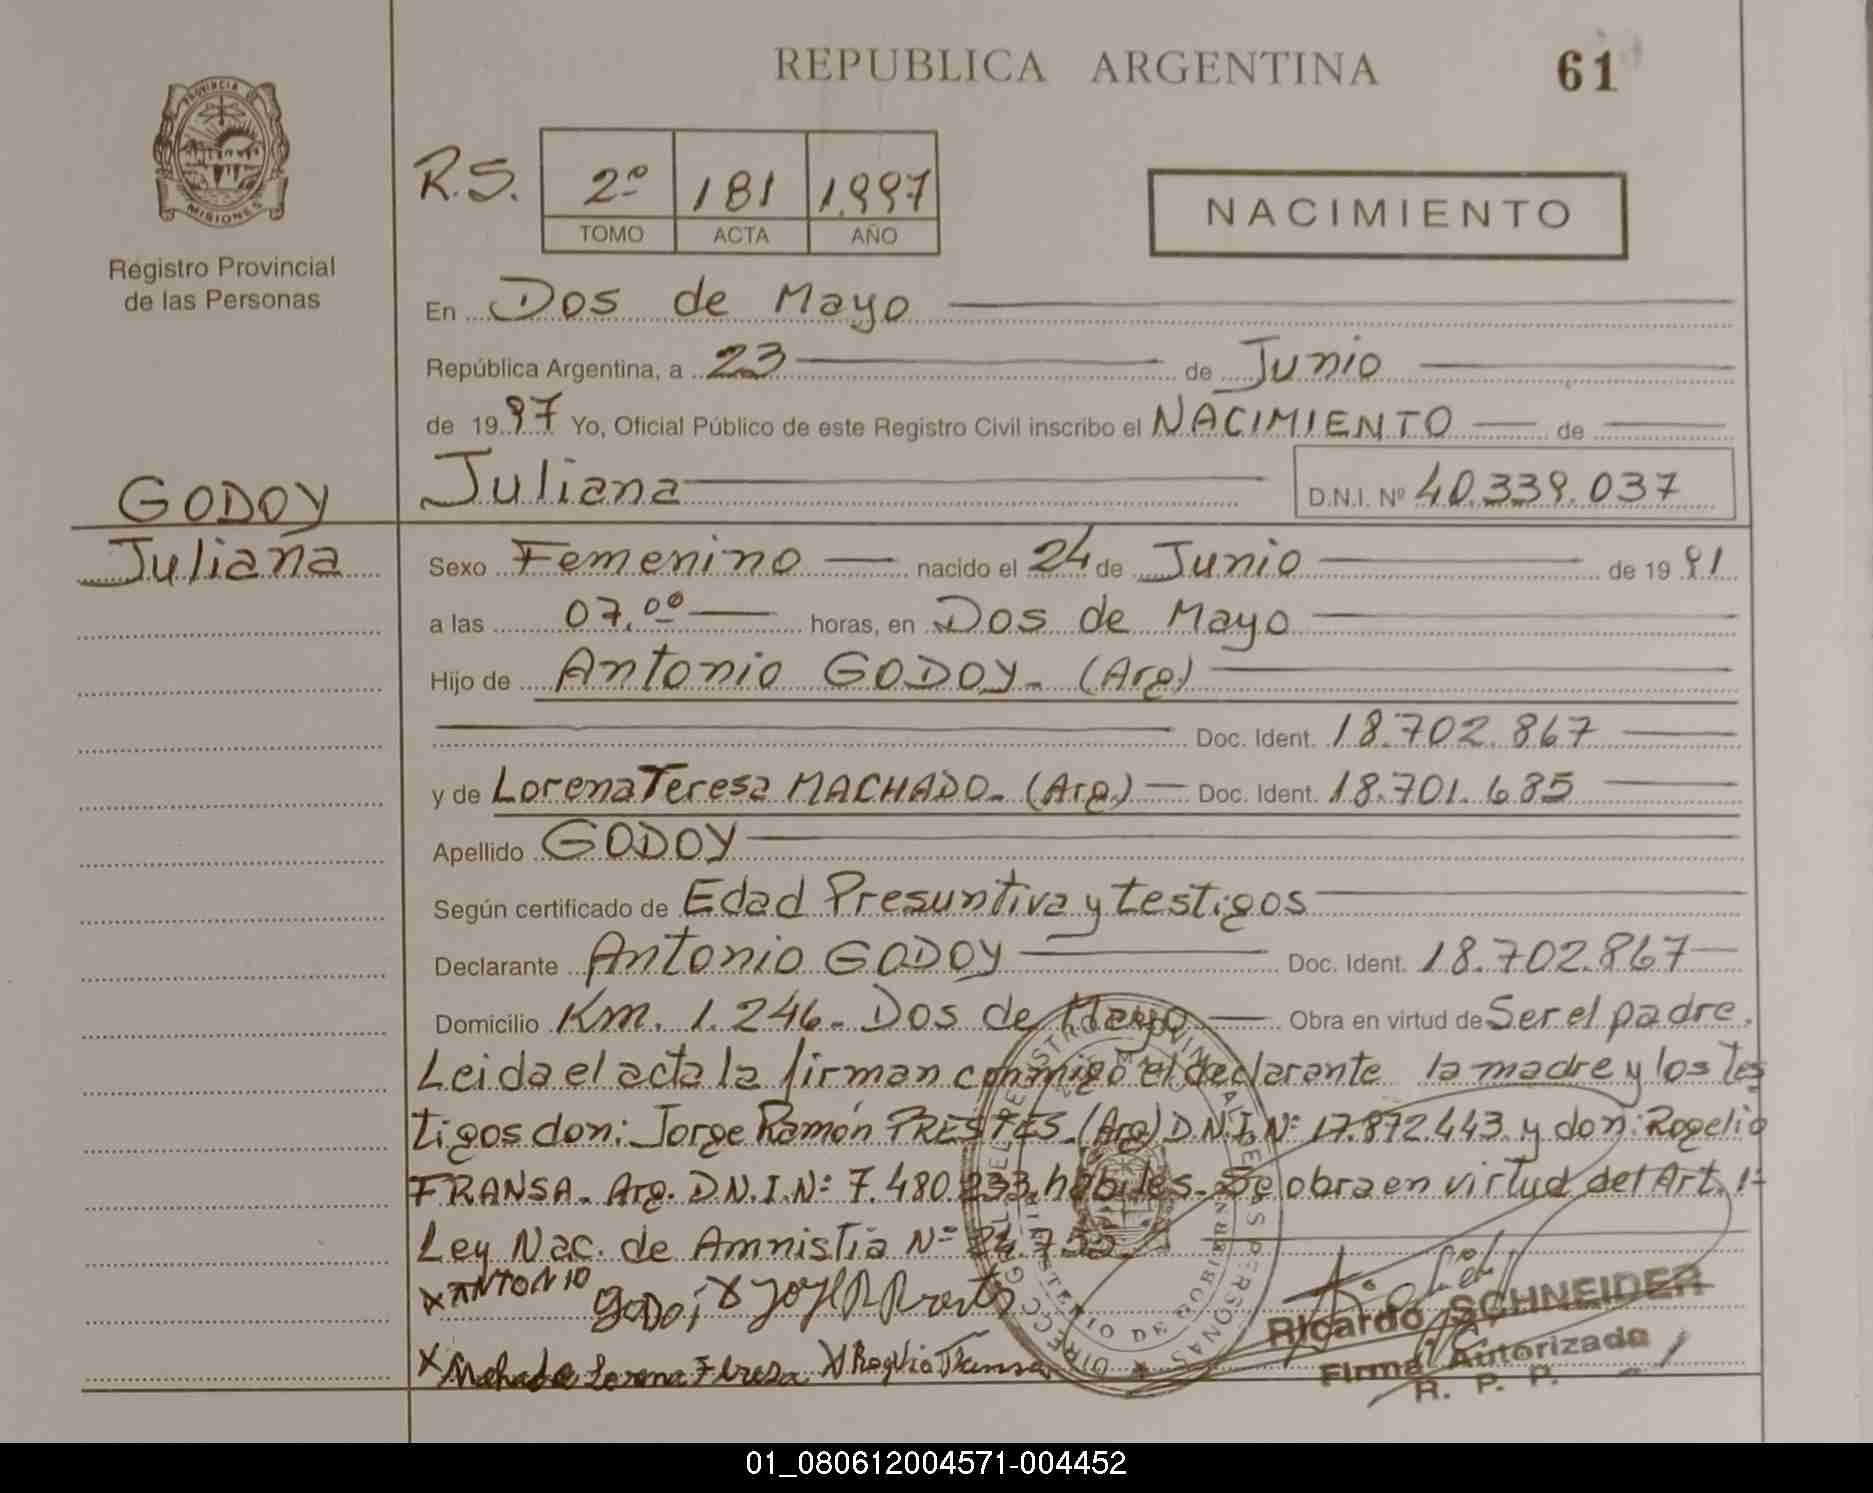 REPUBLICA ARGENTINA
61
PROVINCIA DE
MISIONES
Registro Provincial
de las Personas
R.S. 2º 181 1.997
TOMO ACTA AÑO
NACIMIENTO
En Dos de Mayo
República Argentina, a 23 de Junio
de 1997 Yo, Oficial Público de este Registro Civil inscribo el NACIMIENTO de
Juliana D.N.I. Nº 40.339.037
GODOY
Juliana
Sexo Femenino nacido el 24 de Junio de 1991
a las 07.00 horas, en Dos de Mayo
Hijo de Antonio GODOY.- (Arg)
Doc. Ident. 18.702.867
y de Lorena Teresa MACHADO.- (Arg.) Doc. Ident. 18.701.685
Apellido GODOY
Según certificado de Edad Presuntiva y testigos
Declarante Antonio GODOY Doc. Ident. 18.702.867
Domicilio Km. 1.246.- Dos de Mayo Obra en virtud de Ser el padre.
Leida el acta la firman conmigo el declarante la madre y los tes
tigos don: Jorge Ramón PRESTES.(Arg) D.N.I.Nº 17.872.443 y don: Rogelio
FRANSA.- Arg. D.N.I.Nº 7.480.233, hábiles.- Se obra en virtud del Art. 1º
Ley Nac. de Amnistia Nº 24.755.
x ANTONIO GODOi x
x Machado Lorena Teresa x Rogelio Fransa
Ricardo SCHNEIDER
Firma Autorizada
R. P. P.
01_080612004571-004452